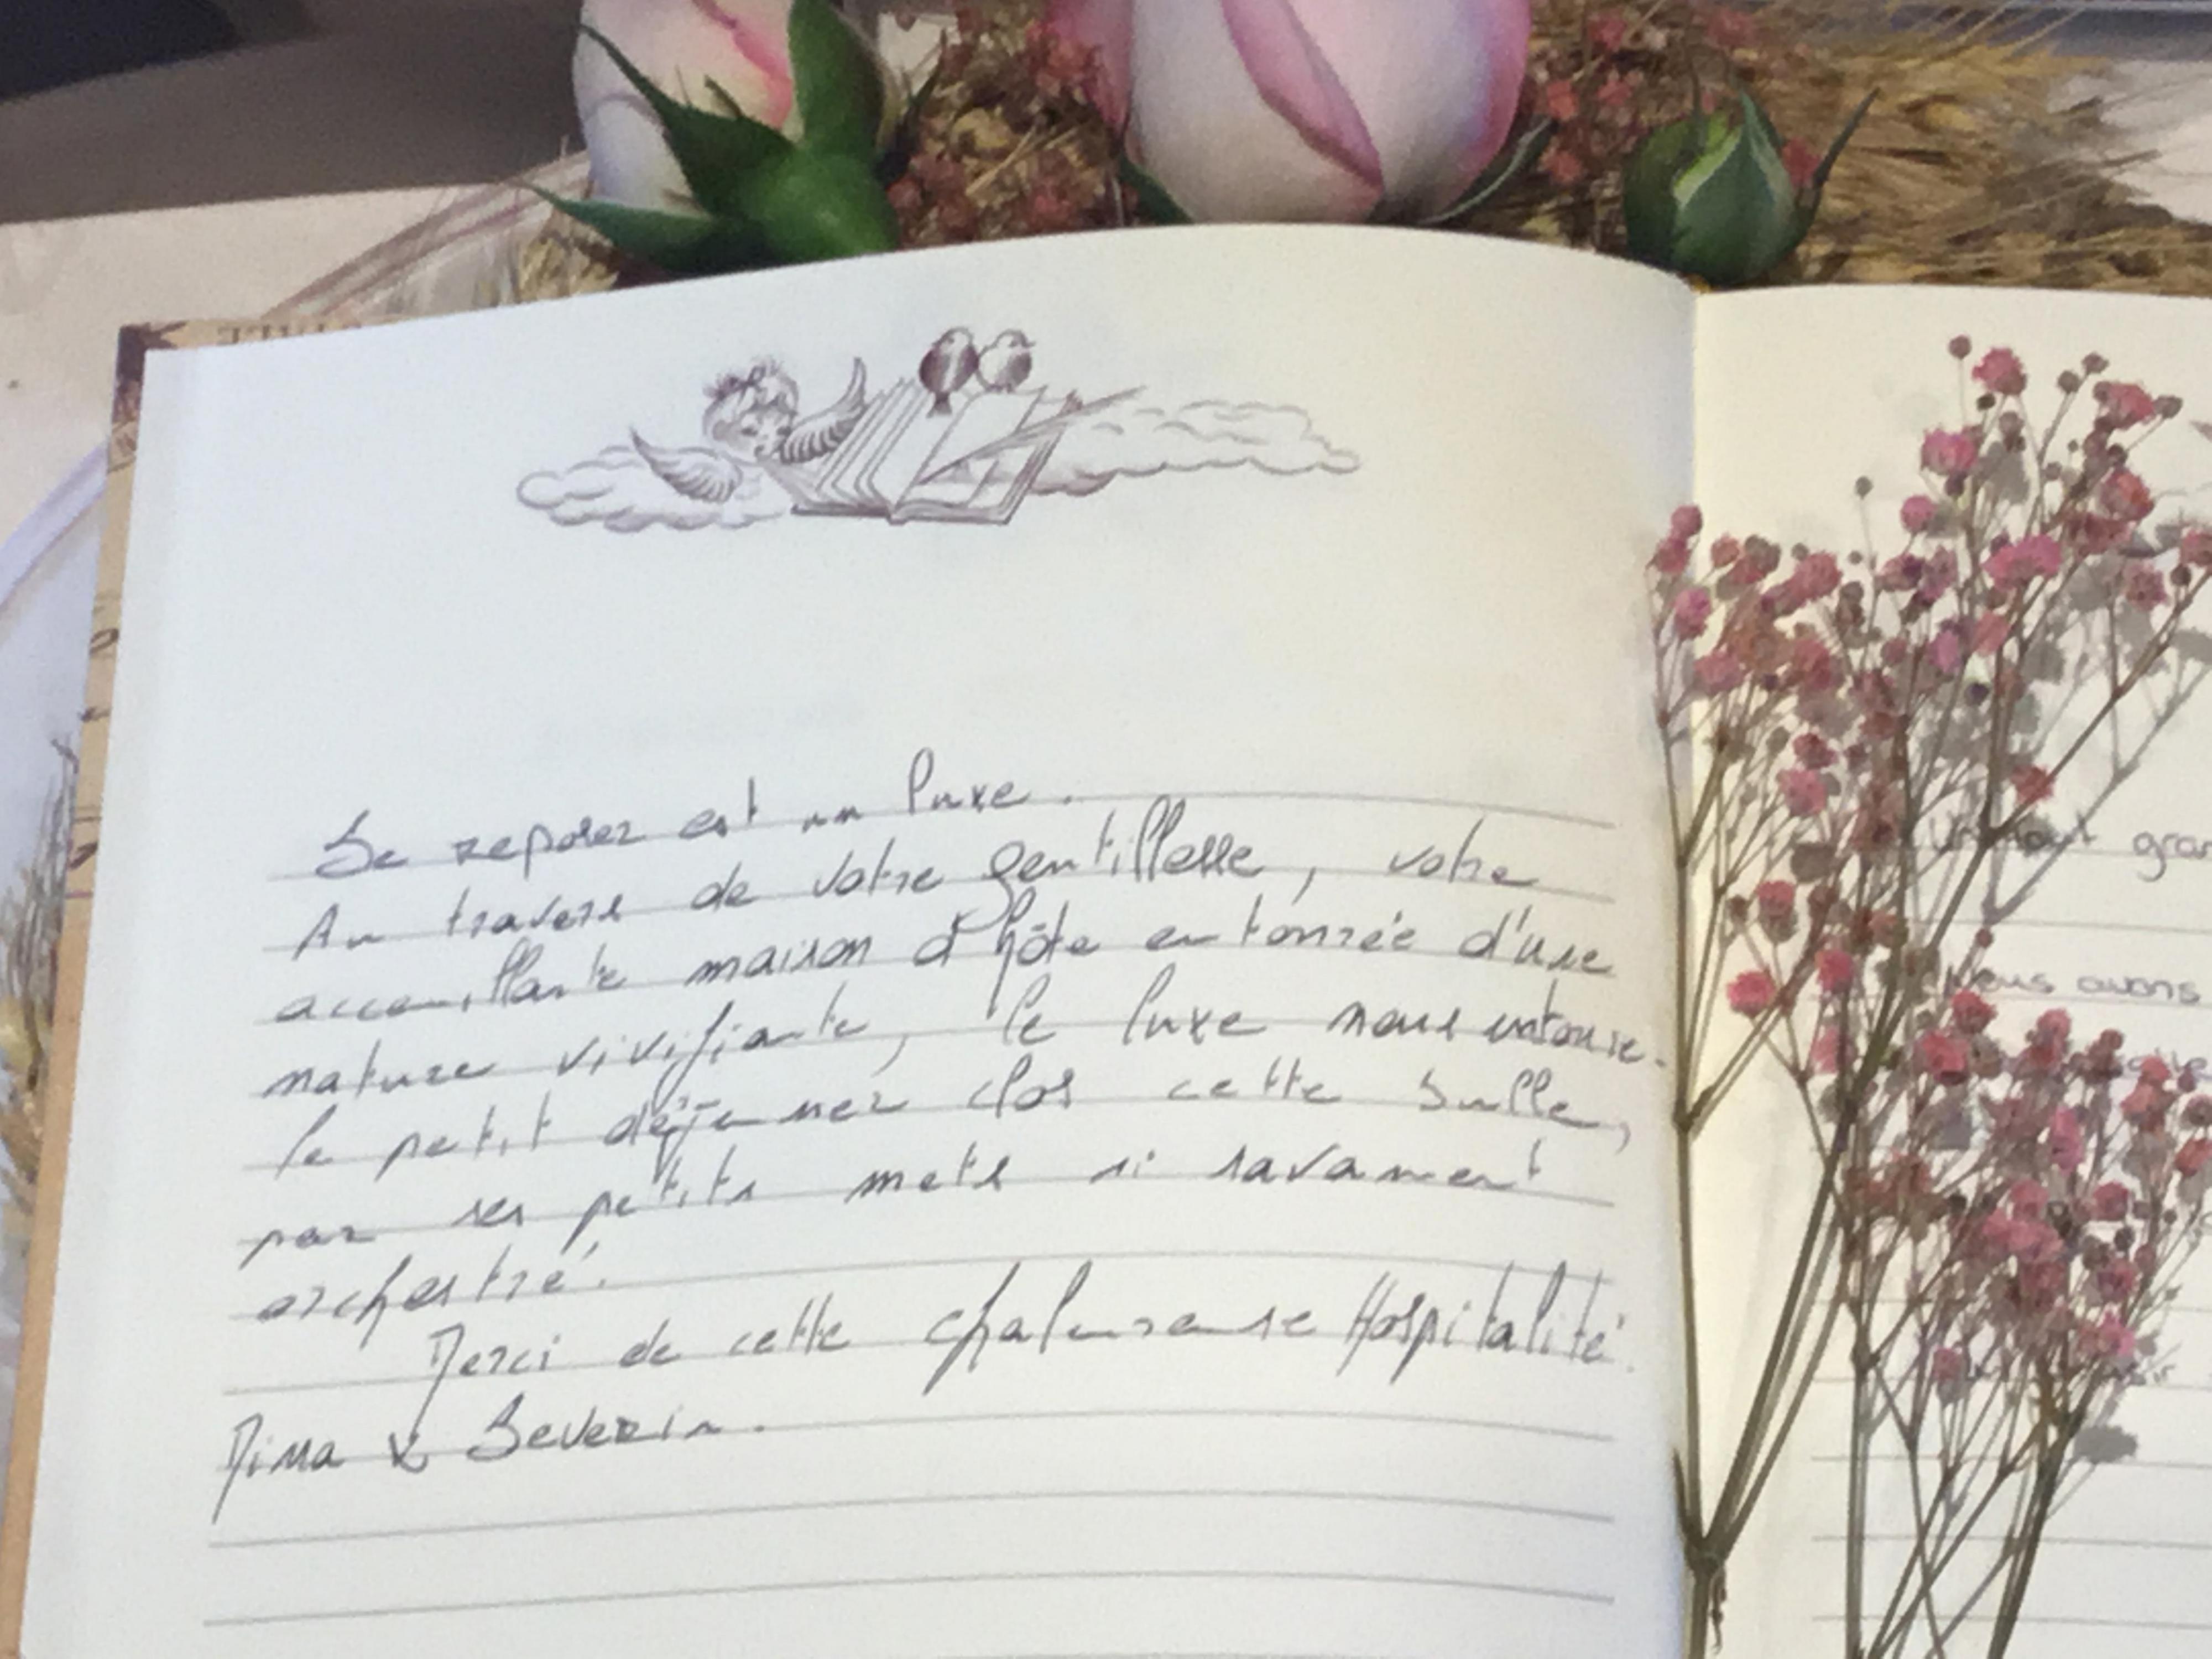 Se reposer est un luxe.
Au travers de votre gentillesse, votre
accueillante maison d'hôte entourée d'une
nature vivifiante, le luxe nous entoure.
le petit déjeuner clos cette bulle,
par ses petits mets si savament
orchestré.
Merci de cette chaleureuse Hospitalité.
& Severin.
Un tout gran
Nous avons